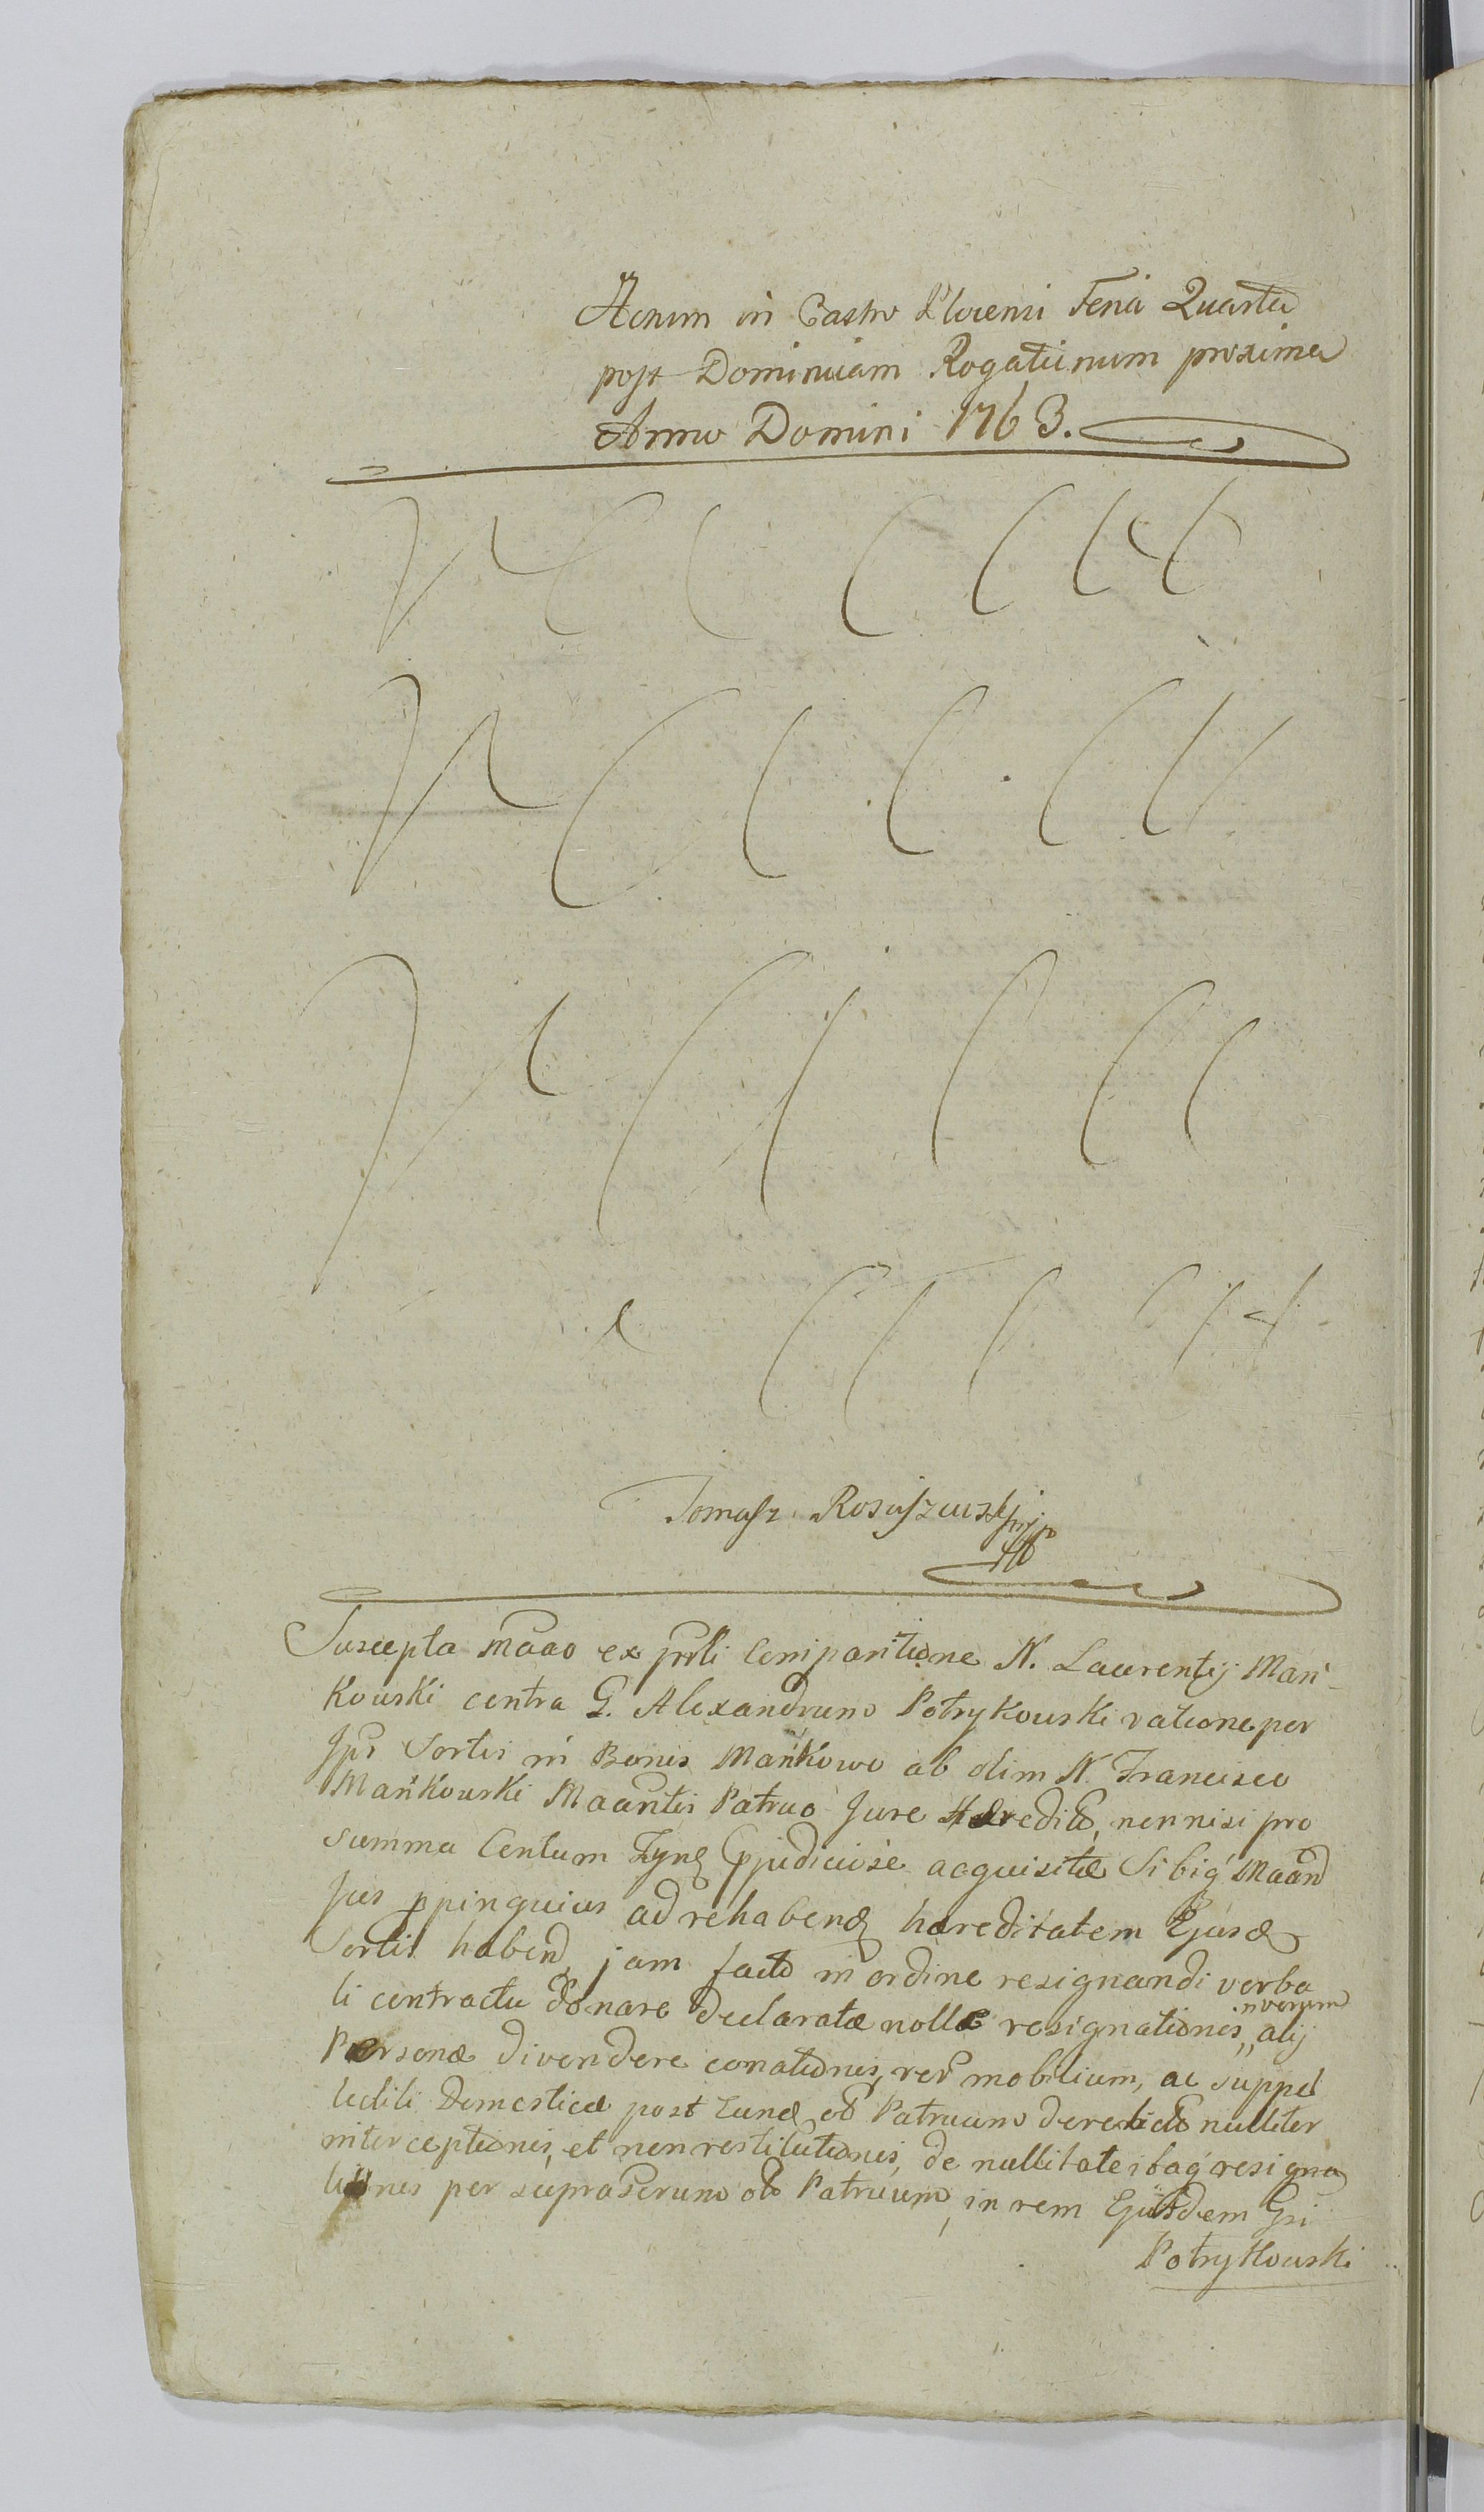 Actum in Castro Plocensi Feria Quarta
post Dominicam Rogationum proxima
Anno Domini 1763.
Tomasz
Suscepta Maao ex prsli Comparitione N. Laurentij Mań
kowski contra G. Alexandrum Potrykowski ratione per
Ips Sortis in Bonis Mańkowo ab olim N. Francisco
Mańkowski Maantis Patruo Jure Haeredit, non nisi pro
summa Centum acquisitae Sibiq Maand
Jus ppinquius ad rehabend haereditatem Ejusd
Sortis habend, jam facto in ordine resignandi verba
li contractu donare declaratae nollae resignationis, „ inverum alij
Personae divendere conationis, rer mobilium, ac suppel
lectili Domesticae post Eund ol Patruum derelict nulliter
interceptionis, et non restitutionis, de nullitate itaq resigna
tionis per suprascrum ol Patruum, in rem Ejusdem Gsi
Potrykowski